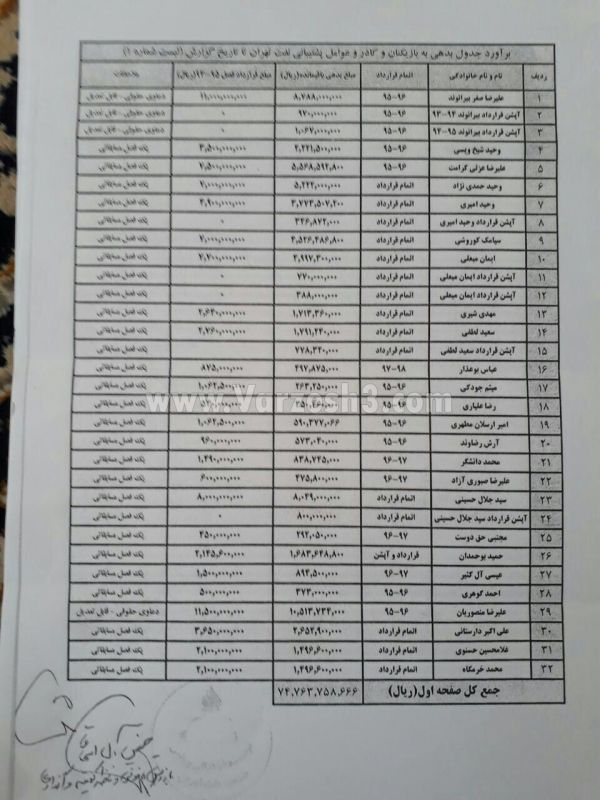 برآورد جدول بدهی به بازیکنان و کادر و عوامل پشتیبانی نفت تهران تا تاریخ گزارش (لیست شماره ۱)
ردیف نام و نام خانوادگی اتمام قرارداد مبلغ بدهی باقیمانده(ریال) مبلغ قرارداد فصل ۹۵-۹۴(ریال)
۱ علیرضا صفر بیرانوند ۹۵-۹۶ ۸,۷۸۸,۰۰۰,۰۰۰ ۱۱,۰۰۰,۰۰۰,۰۰۰ دعاوی حقوقی - قابل تعدیل
۲ آپشن قرارداد بیرانوند ۹۴-۹۳ ۹۵-۹۶ ۹۷۰,۰۰۰,۰۰۰ ۰ دعاوی حقوقی - قابل تعدیل
۳ آپشن قرارداد بیرانوند ۹۵-۹۴ ۹۵-۹۶ ۱,۰۶۷,۰۰۰,۰۰۰ ۰ دعاوی حقوقی - قابل تعدیل
۴ وحید شیخ ویسی ۹۵-۹۶ ۲,۲۲۱,۵۰۰,۰۰۰ ۳,۵۰۰,۰۰۰,۰۰۰ یک فصل مسابقاتی
۵ علیرضا عزتی کرامت ۹۵-۹۶ ۵,۵۶۸,۵۹۲,۸۰۰ ۷,۵۰۰,۰۰۰,۰۰۰ یک فصل مسابقاتی
۶ وحید حمدی نژاد اتمام قرارداد ۵,۲۲۲,۰۰۰,۰۰۰ ۷,۰۰۰,۰۰۰,۰۰۰ یک فصل مسابقاتی
۷ وحید امیری اتمام قرارداد ۳,۷۷۳,۵۰۷,۲۰۰ ۴,۹۰۰,۰۰۰,۰۰۰ یک فصل مسابقاتی
۸ آپشن قرارداد وحید امیری اتمام قرارداد ۳۴۶,۸۷۲,۰۰۰ ۰ یک فصل مسابقاتی
۹ سیامک کوروشی اتمام قرارداد ۴,۵۲۶,۴۸۶,۸۰۰ ۷,۰۰۰,۰۰۰,۰۰۰ یک فصل مسابقاتی
۱۰ ایمان مبعلی اتمام قرارداد ۲,۹۹۷,۳۰۰,۰۰۰ ۷,۷۰۰,۰۰۰,۰۰۰ یک فصل مسابقاتی
۱۱ آپشن قرارداد ایمان مبعلی اتمام قرارداد ۷۷۰,۰۰۰,۰۰۰ ۰ یک فصل مسابقاتی
۱۲ آپشن قرارداد ایمان مبعلی اتمام قرارداد ۳۸۸,۰۰۰,۰۰۰ ۰ یک فصل مسابقاتی
۱۳ مهدی شیری اتمام قرارداد ۱,۷۱۳,۳۶۰,۰۰۰ ۲,۶۴۰,۰۰۰,۰۰۰ یک فصل مسابقاتی
۱۴ سعید لطفی اتمام قرارداد ۱,۷۹۱,۲۴۰,۰۰۰ ۲,۷۶۰,۰۰۰,۰۰۰ یک فصل مسابقاتی
۱۵ آپشن قرارداد سعید لطفی اتمام قرارداد ۷۷۸,۳۲۰,۰۰۰ یک فصل مسابقاتی
۱۶ عباس بوعذار ۹۷-۹۸ ۴۹۷,۸۷۵,۰۰۰ ۸۷۵,۰۰۰,۰۰۰ یک فصل مسابقاتی
۱۷ میثم جودکی ۹۵-۹۶ ۲۶۳,۲۵۰,۰۰۰ ۱,۰۶۲,۵۰۰,۰۰۰ یک فصل مسابقاتی
www.Varzesh3.com
۱۸ رضا علیاری ۹۵-۹۶ یک فصل مسابقاتی
۱۹ امیر ارسلان مطهری ۹۵-۹۶ ۵۹۰,۳۷۷,۰۶۶ ۱,۰۶۲,۵۰۰,۰۰۰ یک فصل مسابقاتی
۲۰ آرش رضاوند ۹۵-۹۶ ۵۷۳,۰۴۰,۰۰۰ ۹۶۰,۰۰۰,۰۰۰ یک فصل مسابقاتی
۲۱ محمد دانشگر ۹۶-۹۷ ۸۳۸,۷۴۵,۰۰۰ ۱,۴۹۰,۰۰۰,۰۰۰ یک فصل مسابقاتی
۲۲ علیرضا صبوری آزاد ۹۶-۹۷ ۴۷۵,۸۰۰,۰۰۰ ۶۰۰,۰۰۰,۰۰۰ یک فصل مسابقاتی
۲۳ سید جلال حسینی اتمام قرارداد ۸,۰۴۹,۰۰۰,۰۰۰ ۸,۰۰۰,۰۰۰,۰۰۰ یک فصل مسابقاتی
۲۴ آپشن قرارداد سید جلال حسینی اتمام قرارداد ۸۰۰,۰۰۰,۰۰۰ ۰ یک فصل مسابقاتی
۲۵ مجتبی حق دوست ۹۶-۹۷ ۲۹۲,۰۵۰,۰۰۰ ۴۵۰,۰۰۰,۰۰۰ یک فصل مسابقاتی
۲۶ حمید بوحمدان قرارداد و آپشن ۱,۶۸۳,۶۴۸,۸۰۰ ۲,۱۴۵,۶۰۰,۰۰۰ یک فصل مسابقاتی
۲۷ عیسی آل کثیر ۹۶-۹۷ ۸۹۴,۵۰۰,۰۰۰ ۱,۵۰۰,۰۰۰,۰۰۰ یک فصل مسابقاتی
۲۸ احمد گوهری ۹۵-۹۶ ۳۷۳,۰۰۰,۰۰۰ ۵۰۰,۰۰۰,۰۰۰ یک فصل مسابقاتی
۲۹ علیرضا منصوریان ۹۵-۹۶ ۱۰,۵۱۳,۷۳۴,۰۰۰ ۱۱,۵۰۰,۰۰۰,۰۰۰ دعاوی حقوقی - قابل تعدیل
۳۰ علی اکبر دارستانی اتمام قرارداد ۲,۶۵۲,۹۰۰,۰۰۰ ۳,۶۵۰,۰۰۰,۰۰۰ یک فصل مسابقاتی
۳۱ غلامحسین حسنوی اتمام قرارداد ۱,۴۹۶,۶۰۰,۰۰۰ ۲,۱۰۰,۰۰۰,۰۰۰ یک فصل مسابقاتی
۳۲ محمد خرمگاه اتمام قرارداد ۱,۴۹۶,۶۰۰,۰۰۰ ۲,۱۰۰,۰۰۰,۰۰۰ یک فصل مسابقاتی
جمع کل صفحه اول(ریال) ۷۴,۷۶۳,۷۵۸,۶۶۶